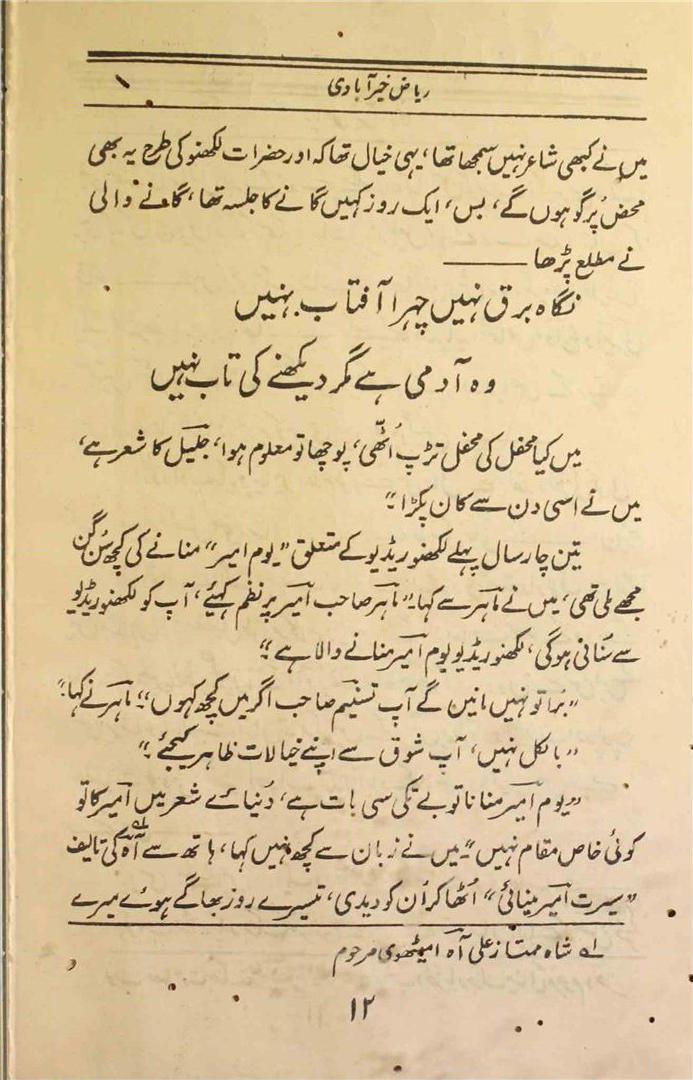 ریاض خیرآبادی
۱
میں نے کبھی شاعر نہیں سمجھا تھا، یہی خیال تھا کہ اور حضرات لکھنو کی طرح یہ بھی
محض پُرگو ہوں گے، بس، ایک روز کہیں گانے کا جلسہ تھا، گانے والی
نے مطلع پڑھا ———
نگاہ برق نہیں چہرا آفتاب نہیں
وہ آدمی ہے مگر دیکھنے کی تاب نہیں
میں کیا محفل کی محفل تڑپ اُٹھّی، پوچھا تو معلوم ہوا، جلیل کا شعر ہے،
میں نے اسی دن سے کان پکڑا۔"
تین چار سال پہلے لکھنو ریڈیو کے متعلق "یوم امیر" منانے کی کچھ سُن گُن
مجھے ملی تھی، میں نے ماہر سے کہا۔ "ماہر صاحب امیر پر نظم کہیئے، آپ کو لکھنو ریڈیو
سے سُنانی ہوگی، لکھنو ریڈیو یوم امیر منانے والا ہے۔"
"بُرا تو نہیں مانیں گے آپ تسنیم صاحب اگر میں کچھ کہوں"؛ ماہر نے کہا۔"
"بالکل نہیں، آپ شوق سے اپنے خیالات ظاہر کیجئے۔"
"یوم امیر منانا تو بے تکی سی بات ہے، دُنیائے شعر میں امیر کا تو
کوئی خاص مقام نہیں"۔ میں نے زبان سے کچھ نہیں کہا، ہاتھ سے آہ ؎۱ کی تالیف
"سیرت امیر مینائی" اُٹھا کر اُن کو دیدی، تیسرے روز بھاگے ہوئے میرے
؎۱ شاہ ممتاز علی آہ امیٹھوی مرحوم
۱۲